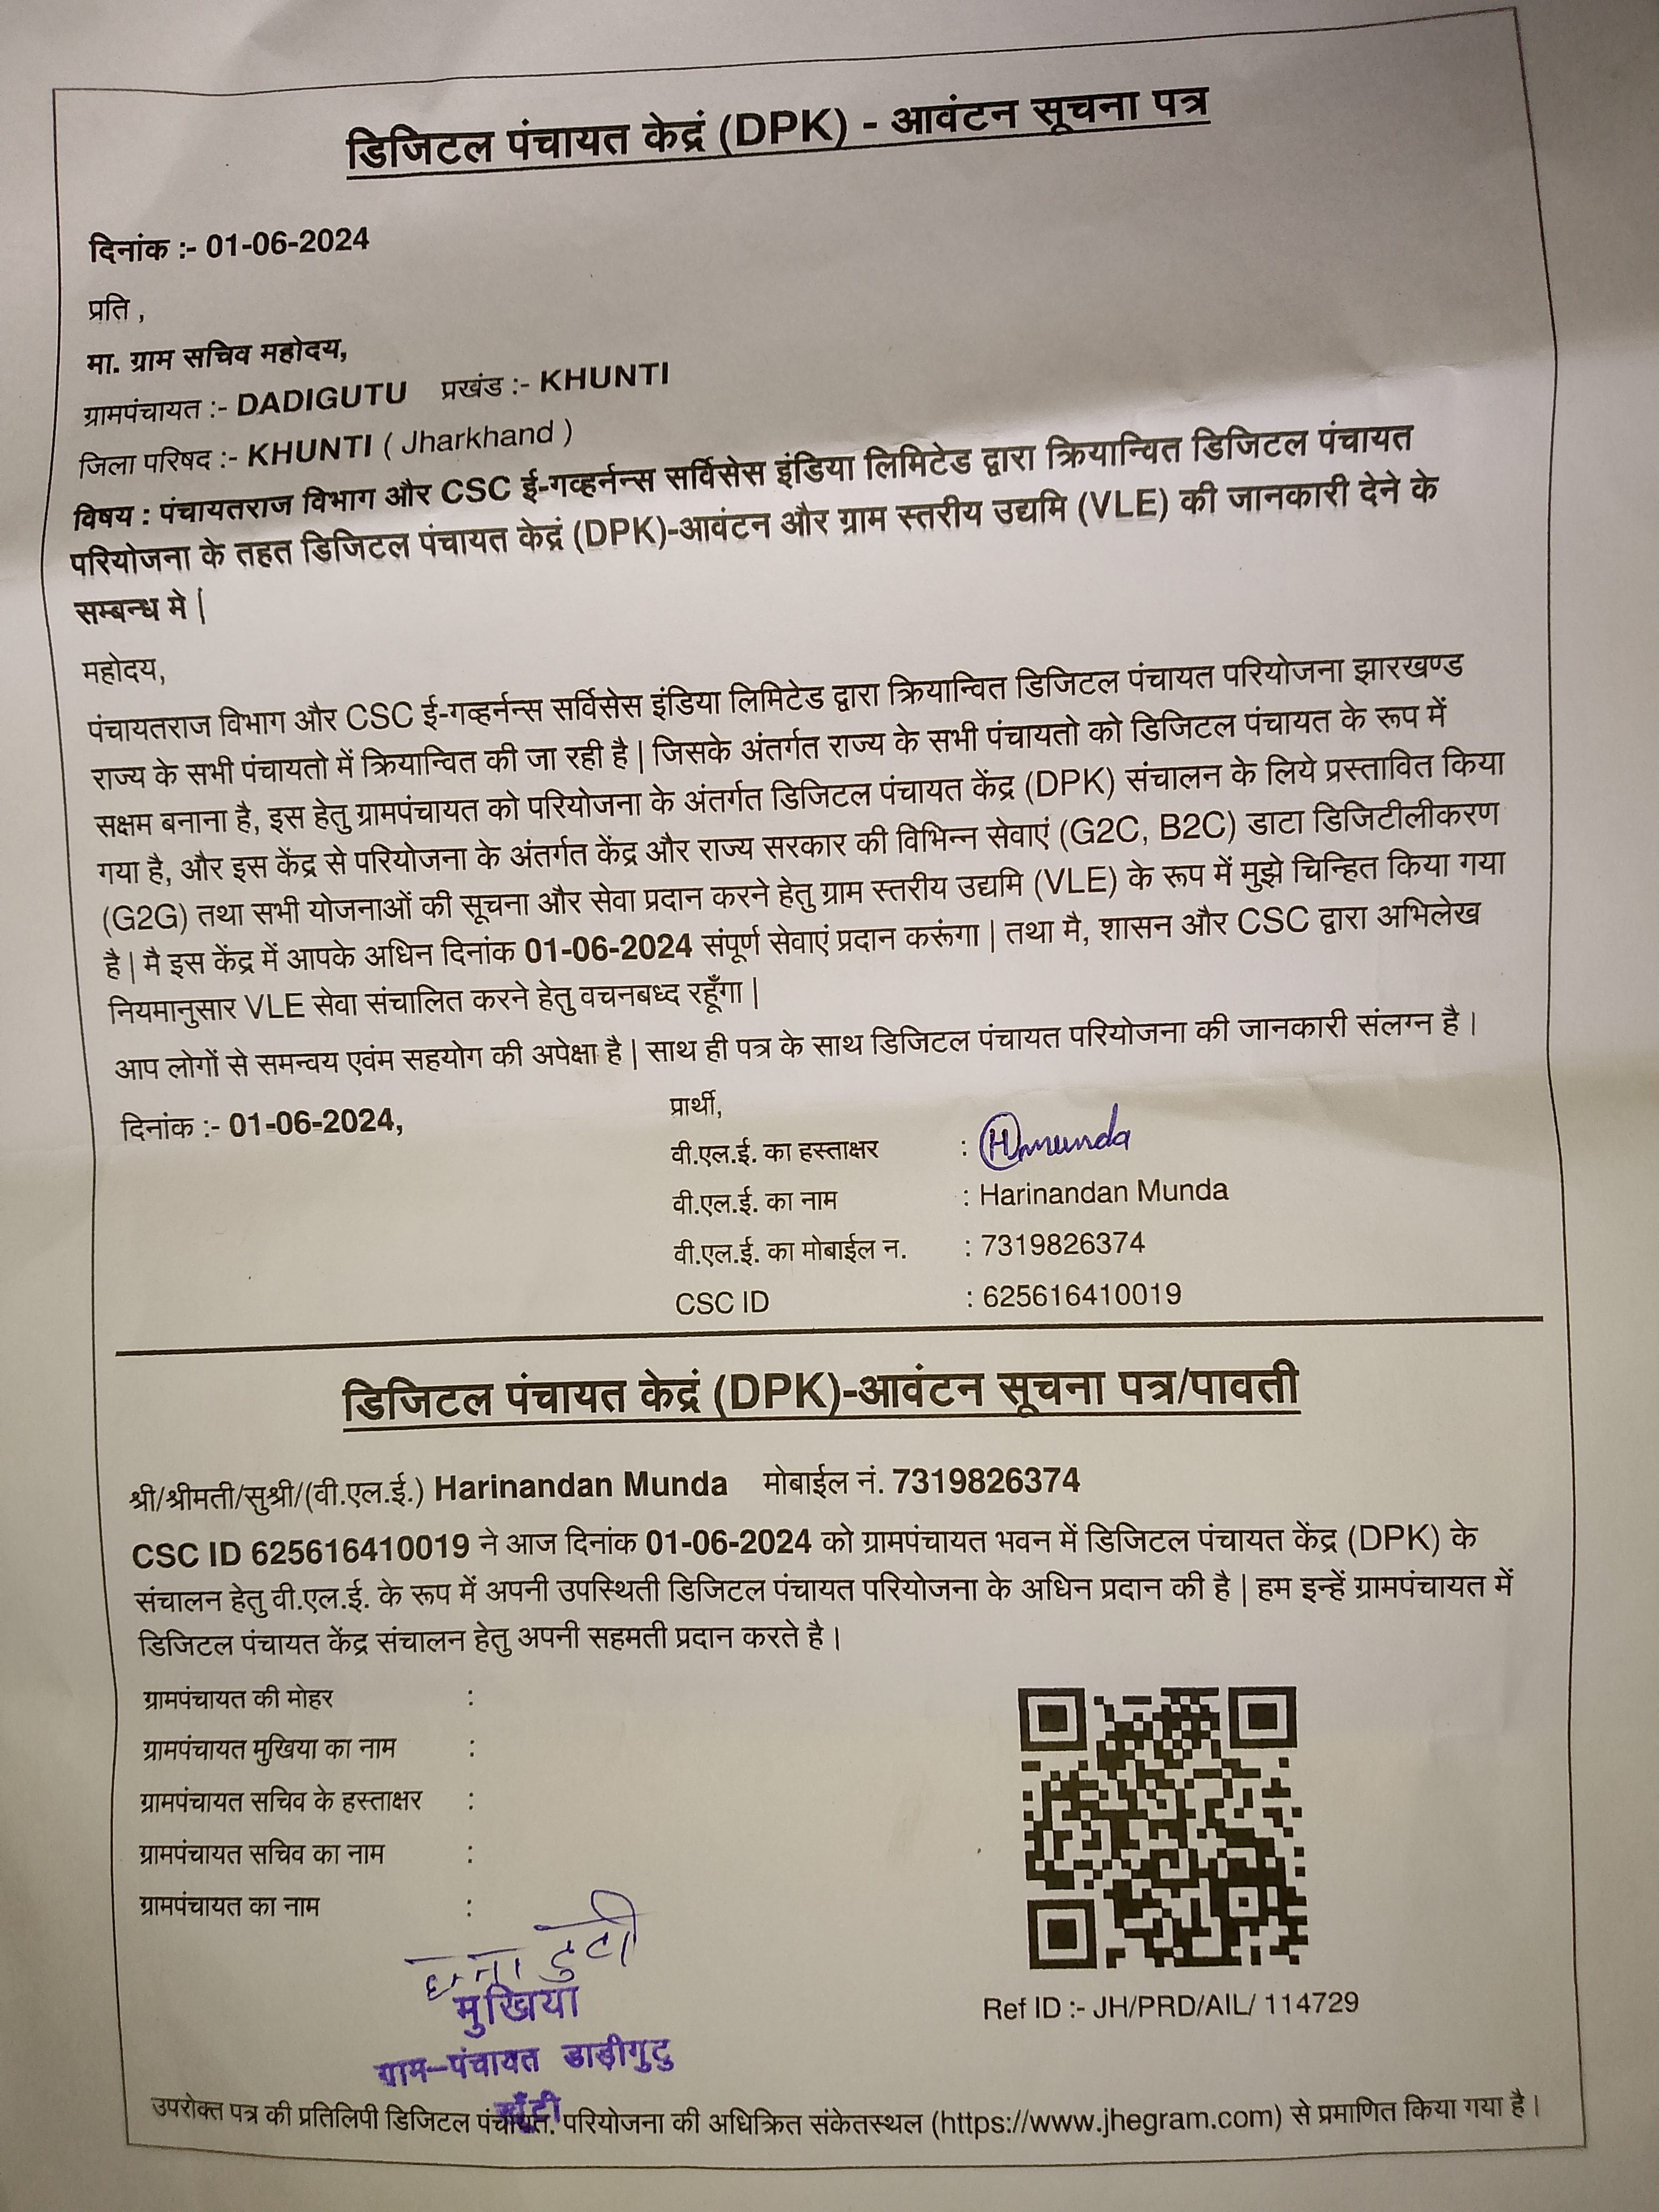 डिजिटल पंचायत केद्रं (DPK) - आवंटन सूचना पत्र
दिनांक :- 01-06-2024
प्रति ,
मा. ग्राम सचिव महोदय,
ग्रामपंचायत :- DADIGUTU प्रखंड :- KHUNTI
जिला परिषद :- KHUNTI ( Jharkhand )
विषय : पंचायतराज विभाग और CSC ई-गव्हर्नन्स सर्विसेस इंडिया लिमिटेड द्वारा क्रियान्वित डिजिटल पंचायत
परियोजना के तहत डिजिटल पंचायत केद्रं (DPK)-आवंटन और ग्राम स्तरीय उद्यमि (VLE) की जानकारी देने के
सम्बन्ध मे |
महोदय,
पंचायतराज विभाग और CSC ई-गव्हर्नन्स सर्विसेस इंडिया लिमिटेड द्वारा क्रियान्वित डिजिटल पंचायत परियोजना झारखण्ड
राज्य के सभी पंचायतो में क्रियान्वित की जा रही है | जिसके अंतर्गत राज्य के सभी पंचायतो को डिजिटल पंचायत के रूप में
सक्षम बनाना है, इस हेतु ग्रामपंचायत को परियोजना के अंतर्गत डिजिटल पंचायत केंद्र (DPK) संचालन के लिये प्रस्तावित किया
गया है, और इस केंद्र से परियोजना के अंतर्गत केंद्र और राज्य सरकार की विभिन्न सेवाएं (G2C, B2C) डाटा डिजिटीलीकरण
(G2G) तथा सभी योजनाओं की सूचना और सेवा प्रदान करने हेतु ग्राम स्तरीय उद्यमि (VLE) के रूप में मुझे चिन्हित किया गया
है | मै इस केंद्र में आपके अधिन दिनांक 01-06-2024 संपूर्ण सेवाएं प्रदान करूंगा | तथा मै, शासन और CSC द्वारा अभिलेख
नियमानुसार VLE सेवा संचालित करने हेतु वचनबध्द रहूँगा |
आप लोगों से समन्वय एवंम सहयोग की अपेक्षा है | साथ ही पत्र के साथ डिजिटल पंचायत परियोजना की जानकारी संलग्न है ।
दिनांक :- 01-06-2024,
प्रार्थी,
वी.एल.ई. का हस्ताक्षर : Hmunda
वी.एल.ई. का नाम : Harinandan Munda
वी.एल.ई. का मोबाईल न. : 7319826374
CSC ID : 625616410019
डिजिटल पंचायत केद्रं (DPK)-आवंटन सूचना पत्र/पावती
श्री/श्रीमती/सुश्री/(वी.एल.ई.) Harinandan Munda मोबाईल नं. 7319826374
CSC ID 625616410019 ने आज दिनांक 01-06-2024 को ग्रामपंचायत भवन में डिजिटल पंचायत केंद्र (DPK) के
संचालन हेतु वी.एल.ई. के रूप में अपनी उपस्थिती डिजिटल पंचायत परियोजना के अधिन प्रदान की है | हम इन्हें ग्रामपंचायत में
डिजिटल पंचायत केंद्र संचालन हेतु अपनी सहमती प्रदान करते है ।
ग्रामपंचायत की मोहर :
ग्रामपंचायत मुखिया का नाम :
ग्रामपंचायत सचिव के हस्ताक्षर :
ग्रामपंचायत सचिव का नाम :
ग्रामपंचायत का नाम :
टुटी
मुखिया
ग्राम-पंचायत डाड़ीगुटु
खूँटी
Ref ID :- JH/PRD/AIL/ 114729
उपरोक्त पत्र की प्रतिलिपी डिजिटल पंचायत. परियोजना की अधिक्रित संकेतस्थल (https://www.jhegram.com) से प्रमाणित किया गया है ।